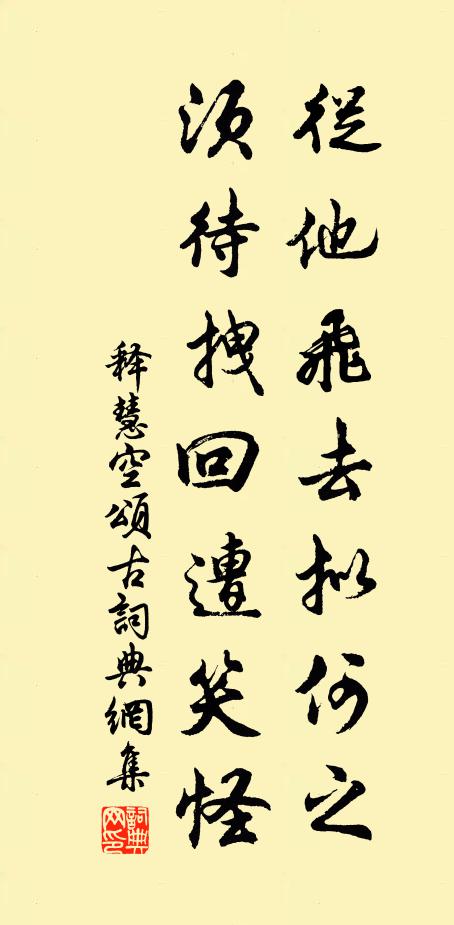 從他飛去拟何之
須待拽回遭笑怪
释慧空頌古詞典網集
詞典
网印